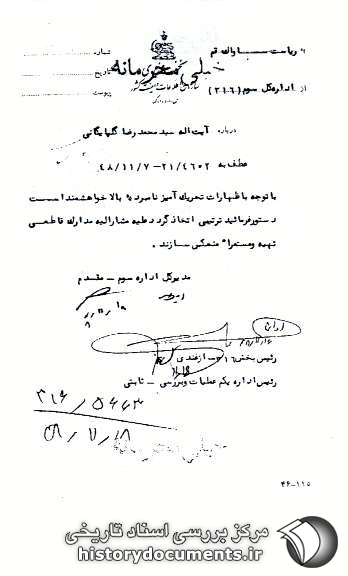 به ریاست ساواک قم
خیلی محرمانه
شماره
تاریخ
پیوست
از اداره کل سوم (۳۱۶)
درباره آیت اله سید محمد رضا گلپایگانی
عطف به ۲۱/۴۶۰۲-۴۸/۱۱/۷
با توجه باظهارات تحریک آمیز نامبرده بالا خواهشمند است
دستور فرمائید ترتیبی اتخاذ گردد علیه مشارالیه مدارک قاطعی
تهیه و مستمرا" منعکس سازند .
مدیر کل اداره سوم - مقدم
رئیس بخش ۳۱۶ - ازغندی
رئیس اداره یکم عملیات و بررسی - ثابتی
خیلی محرمانه
۴۶-۱۱۵
مرکز بررسی اسناد تاریخی
historydocuments.ir